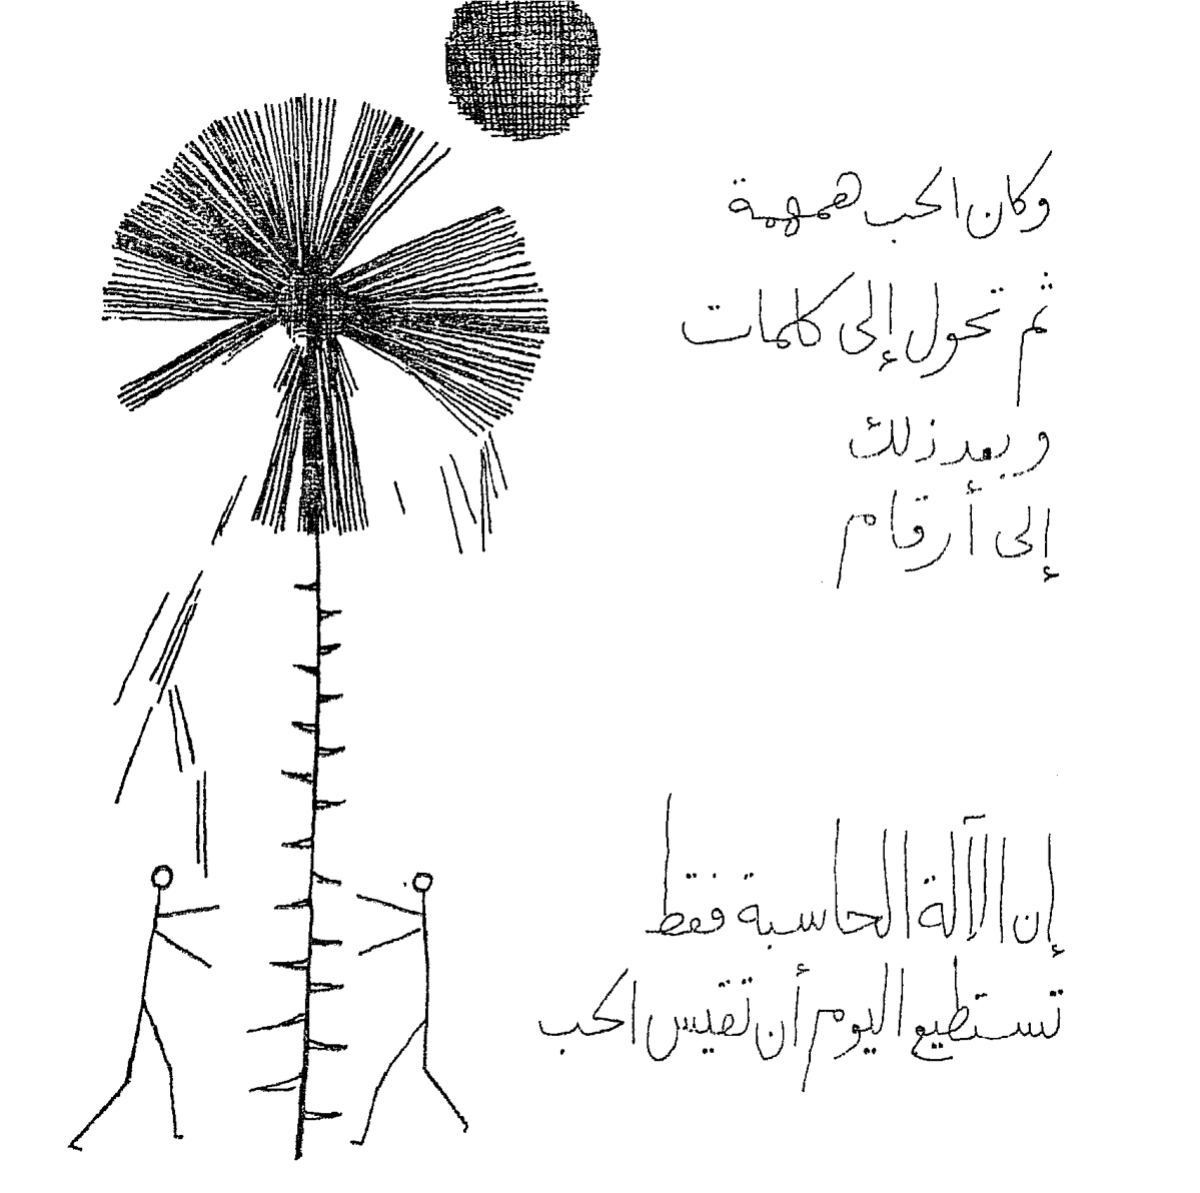 وكان الحب همهمة
ثم تحول إلى كلمات
وبعد ذلك
إلى أرقام
إن الآلة الحاسبة فقط
تستطيع اليوم أن تقيس الحب